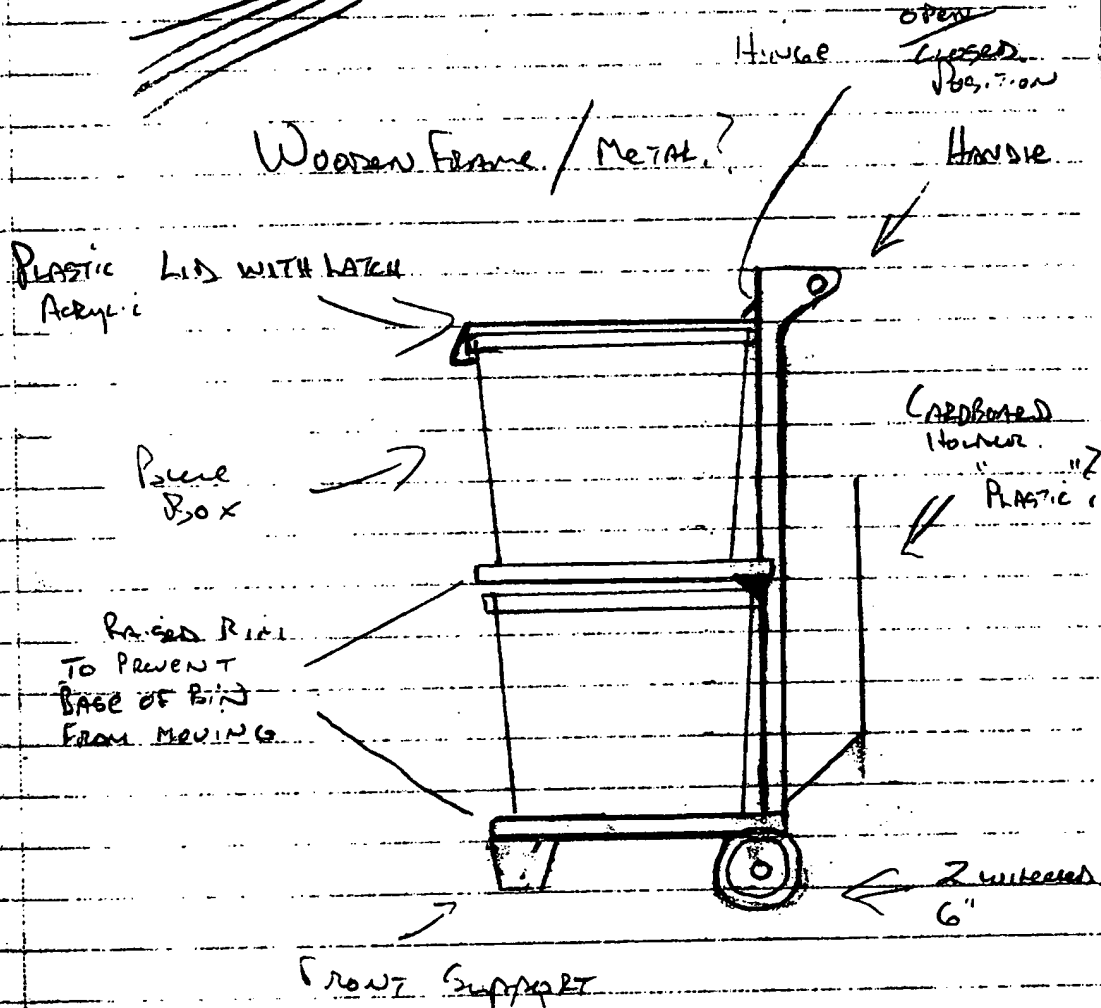 OPEN
Hinge CLOSED
POSITION
WOODEN FRAME / METAL?
HANDLE
PLASTIC LID WITH LATCH
Acrylic
CARDBOARD
"PLASTIC"?
BOX
RAISED RIM
TO PREVENT
BASE OF BIN
FROM MOVING
2 WHEELED
6"
FRONT SUPPORT